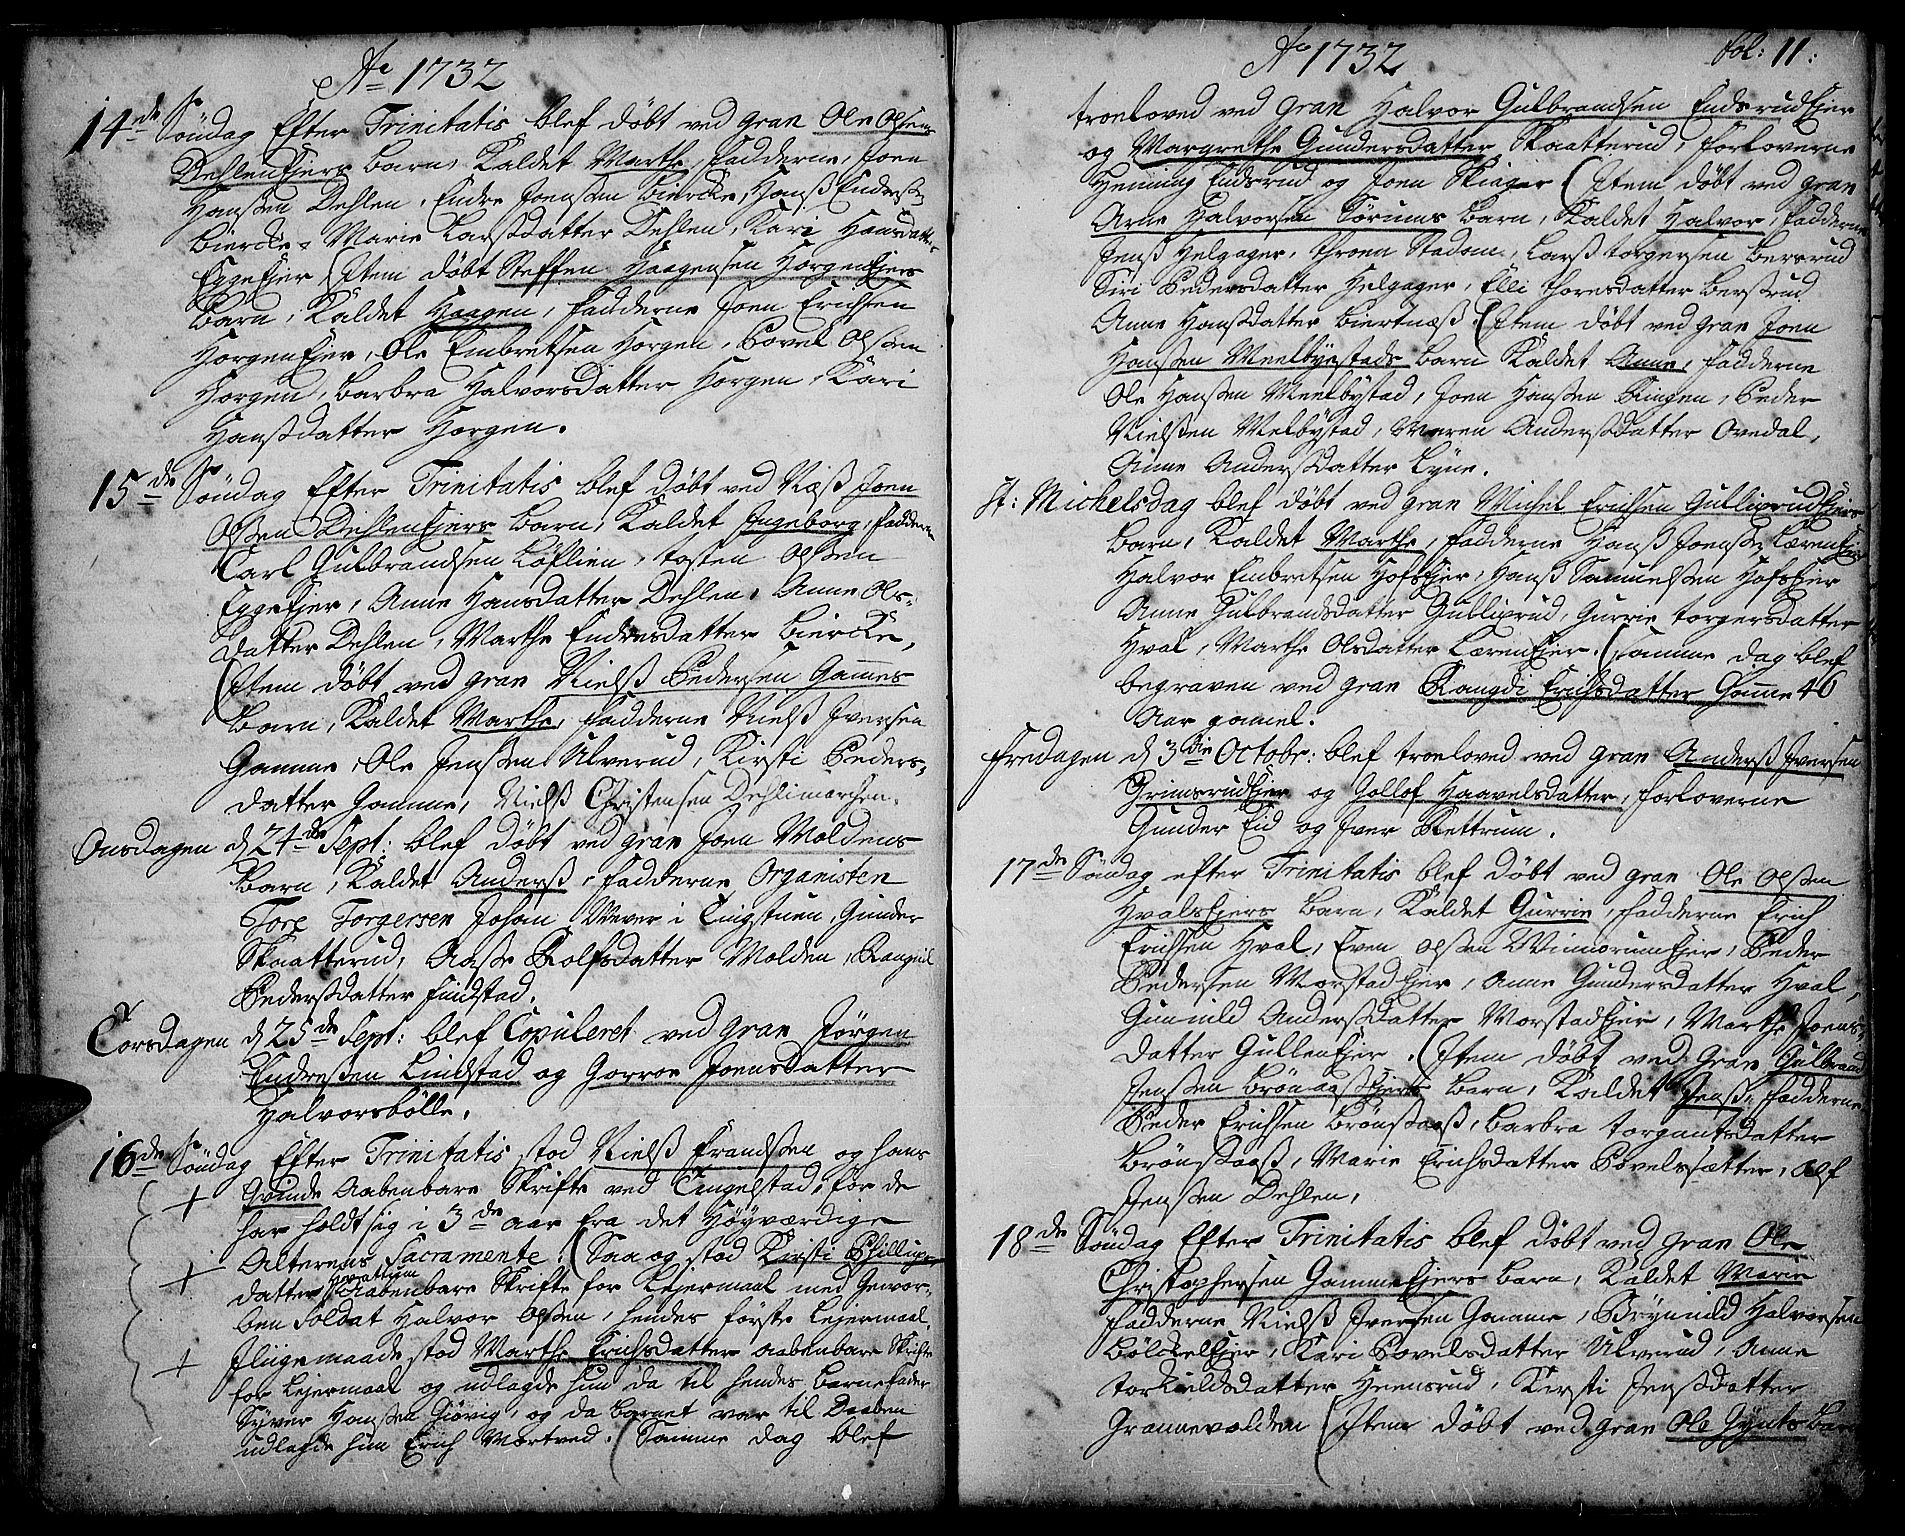 Ao 1732
14de Söndag Efter Trinitatis blef döbt ved gran Ole Olsens
Dehleneiers barn, Kaldet Marthe, fadderne, Joen
Hansen Dehlen, Endre Joensen Biercke, Hanß Endresen
Biercke, Marie Larsdatter Dehlen, Kari Hansdatter
Eggeeier (Item döbt Steffen Haagensen Horgeneiers
Barn, Kaldet Haagen, fadderne Joen Erichsen
Horgeneier, Ole Embretsen Horgen, Povel Olsen
Horgen, barbra Halvorsdatter Horgen, Kari
Hanßdatter Horgen.
15de Söndag Efter Trinitatis blef döbt ved Næß Joen
Olsen Dehleneiers barn, Kaldet Ingeborg, fadderne
Carl Gulbrandsen Löflien, Tosten Olsen
Eggeeier, Anne Hansdatter Dehlen, Anne Ols-
datter Dehlen, Marthe Endresdatter Biercke,
(Item döbt ved gran Nielß Pedersen Gammes
Barn, Kaldet Marthe, fadderne Nielß Iversen
Gamme, Ole Jensen Ulverud, Kirsti Peders-
datter Gamme, Nielß Christensen Dehlimarchen.
Onsdagen d 24de Sept: blef döbt ved gran Joen Moldens
Barn, Kaldet Anderß, fadderne, Organisten
Tore Torgersen Johan Wever i Tingstuen, Gunder
Skaatterud, Aase Rolfsdatter Molden, Rangnil
Pederßdatter Findstad.
Torsdagen d 25de Sept: blef Copuleret ved gran Jörgen
Endresen Lindstad og Gorroe Joensdatter
Halvorsbölle.
16de Söndag Efter Trinitatis stod Nielß Frandsen og hans
Qvinde Aabenbare Skrifte ved Tingelstad, for de
har holdt sig i 3de aar fra det Höyværdige
Alterens Sacramente. (Saa og stod Kirsti Phillips-
datter Aabenbare Skrifte for Leiermaal med Gevor-
ben Soldat Halvor Olsen, hendes förste Leiermaal,
Iligemaade stod Marthe Erichsdatter aabenbare Skrifte
for Leiermaal og udlagde hun da til hendes barnefader
Syver Hansen Giövig, og da barnet var til Daaben
udlagde hun Erich Mortved. (Samme dag blef
Ao 1732 fol: 11:
troeloved ved gran Halvor Gulbrandsen Endsrudeier
og Margrethe Gundersdatter Skaatterud, forloverne
Henning Endsrud og Joen Skiager (Item döbt ved gran
Arne Halvorsen Sorums barn, Kaldet Halvor, fadderne
Jenß Helgager, Throen Stadom, Larß Torgersen Berserud
Siri Pedersdatter Helgager, Elli Thoresdatter Berserud
Anne Hanßdatter Biertnæß (Item döbt ved gran Joen
Hansen Meelbyestads barn Kaldet Anne, fadderne
Ole Hansen Meelbystad, Joen Hansen Ringen, Peder
Nielsen Melbystad, Maren Anderßdatter Ovedal,
Anne Anderßdatter Lyne.
St: Michelsdag blef döbt ved gran Michel Erichsen Gullierudeiers
Barn, Kaldet Marthe, fadderne Hanß Joensen Læreneier
Halvor Embretsen Hofseier, Hanß Samuelsen Hofseier
Anne Gulbrandsdatter Gullierud, Gurrie Torgersdatter
Hval, Marthe Olsdatter Læreneier. (samme dag blef
begraven ved gran Rangdi Erichsdatter Gamme 46
Aar gamel.
Fredagen d 3die Octobr: blef troeloved ved gran Anderß Iversen
Grimsrudeier og Gollof Haavelsdatter, forloverne
Gunder Eid og Iver Rettrum.
17de Söndag efter Trinitatis blef döbt ved gran Ole Olsen
Hvalseiers Barn, Kaldet Gurrie, fadderne Erich
Erichsen Hval, Even Olsen Winnorumeier, Peder
Pedersen Morstadeier, Anne Gundersdatter Hval,
Gunnild Anderßdatter Morstadeier, Marthe Joens-
datter Gulleneier. (Item döbt ved gran Gulbrand
Jensen Brönsaaßeiers barn, Kaldet Jenß, fadderne
Peder Erichsen Brönsaaß, Barbra Torgautsdatter
Brönsaaß, Marie Erichsdatter Povelssætter, Olf
Jensen Dehlen.
18de Söndag Efter Trinitatis blef döbt ved gran Ole
Christophersen Gammeeiers barn, Kaldet Marie
fadderne Nielß Iversen Gamme, Brynnild Halvorsen
Bölckeeier, Kari Povelsdatter Ulverud, Anne
Torkieldsdatter Heensrud, Kirsti Jensdatter
Grannevolden (Item döbt ved gran Ole Gynts barn